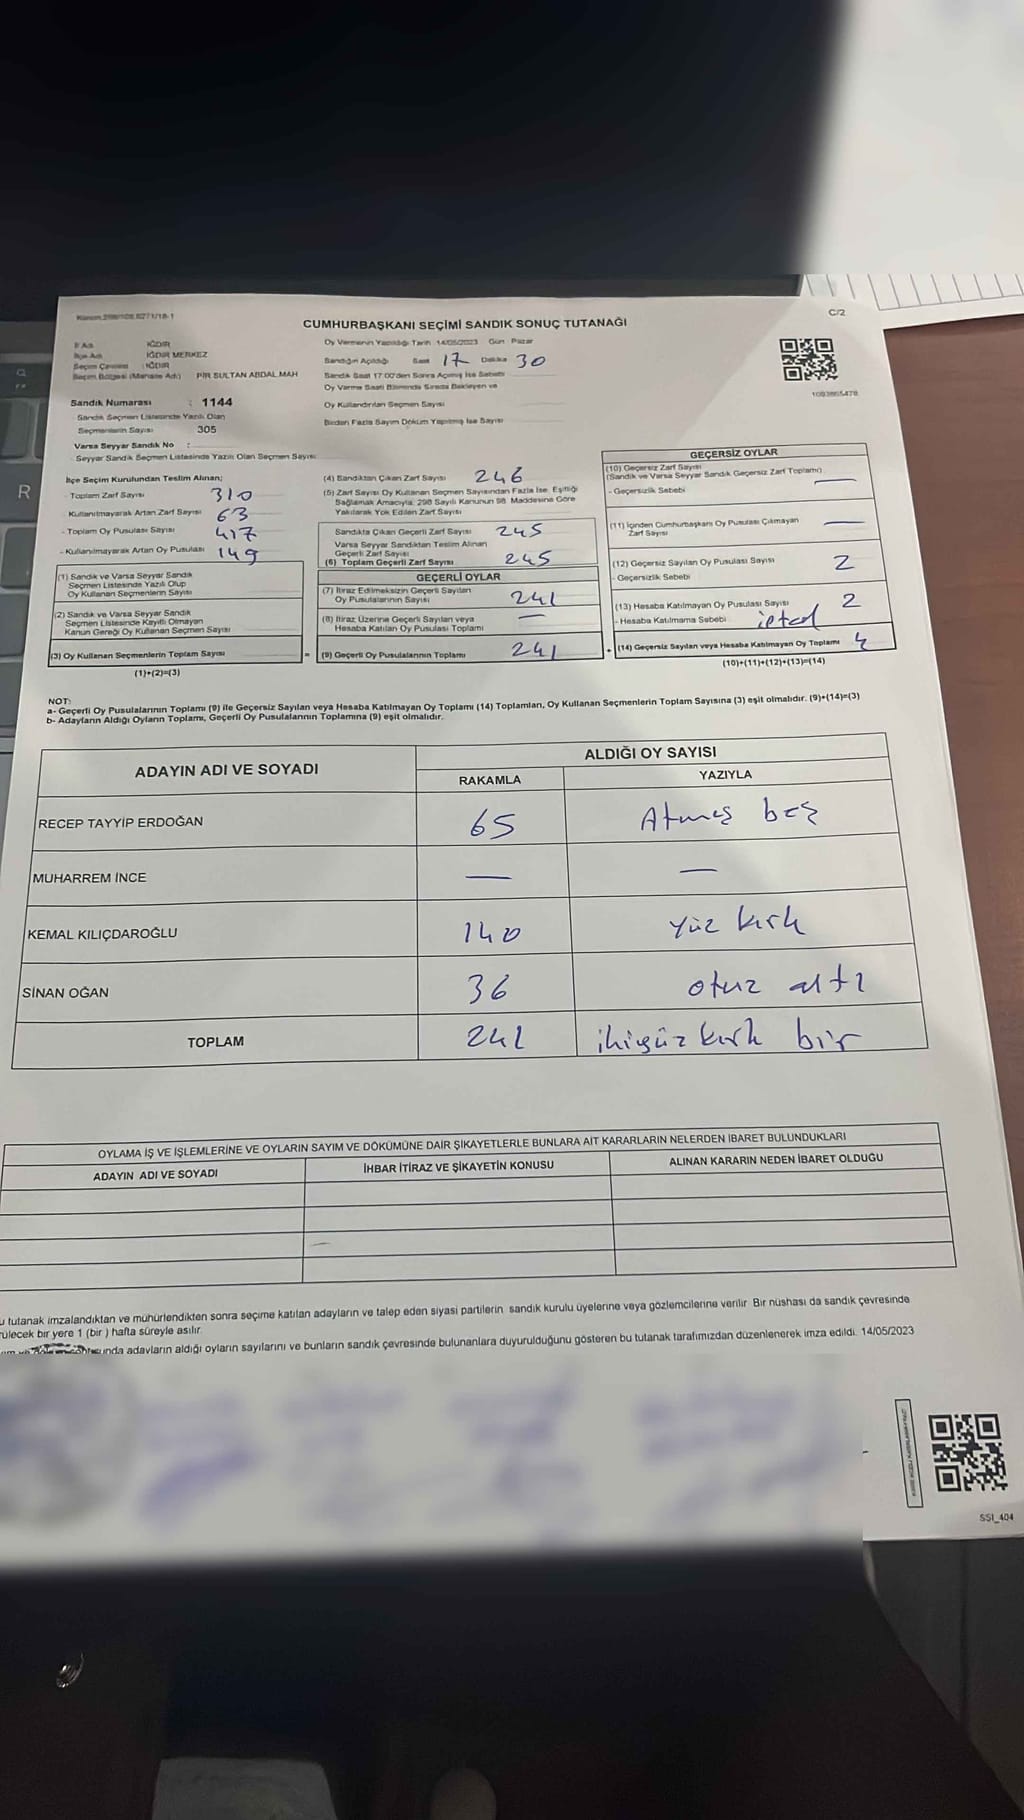 Kanun:298/108,6271/18-1
C/2
CUMHURBAŞKANI SEÇİMİ SANDIK SONUÇ TUTANAĞI
İl Adı IĞDIR
İlçe Adı IĞDIR MERKEZ
Seçim Çevresi : IĞDIR
Seçim Bölgesi (Mahalle Adı) PİR SULTAN ABDAL MAH
Sandık Numarası : 1144
Sandık Seçmen Listesinde Yazılı Olan
Seçmenlerin Sayısı 305
Varsa Seyyar Sandık No :
Seyyar Sandık Seçmen Listesinde Yazılı Olan Seçmen Sayısı
Oy Vermenin Yapıldığı Tarih 14/05/2023 Gün Pazar
Sandığın Açıldığı Saat 17 Dakika 30
Sandık Saat 17.00'den Sonra Açılmış İse Sebebi
Oy Verme Saati Bitiminde Sırada Bekleyen ve
Oy Kullandırılan Seçmen Sayısı
Birden Fazla Sayım Döküm Yapılmış İse Sayısı
1093865478
İlçe Seçim Kurulundan Teslim Alınan;
- Toplam Zarf Sayısı 310
- Kullanılmayarak Artan Zarf Sayısı 63
- Toplam Oy Pusulası Sayısı 417
- Kullanılmayarak Artan Oy Pusulası 149
(1) Sandık ve Varsa Seyyar Sandık
Seçmen Listesinde Yazılı Olup
Oy Kullanan Seçmenlerin Sayısı
(2) Sandık ve Varsa Seyyar Sandık
Seçmen Listesinde Kayıtlı Olmayan
Kanun Gereği Oy Kullanan Seçmen Sayısı
(3) Oy Kullanan Seçmenlerin Toplam Sayısı
(1)+(2)=(3)
(4) Sandıktan Çıkan Zarf Sayısı 246
(5) Zarf Sayısı Oy Kullanan Seçmen Sayısından Fazla İse, Eşitliği
Sağlamak Amacıyla, 298 Sayılı Kanunun 98. Maddesine Göre
Yakılarak Yok Edilen Zarf Sayısı
Sandıkta Çıkan Geçerli Zarf Sayısı 245
Varsa Seyyar Sandıktan Teslim Alınan
Geçerli Zarf Sayısı
(6) Toplam Geçerli Zarf Sayısı 245
GEÇERLİ OYLAR
(7) İtiraz Edilmeksizin Geçerli Sayılan
Oy Pusulalarının Sayısı 241
(8) İtiraz Üzerine Geçerli Sayılan veya
Hesaba Katılan Oy Pusulası Toplamı —
= (9) Geçerli Oy Pusulalarının Toplamı 241
GEÇERSİZ OYLAR
(10) Geçersiz Zarf Sayısı
(Sandık ve Varsa Seyyar Sandık Geçersiz Zarf Toplamı) —
- Geçersizlik Sebebi
(11) İçinden Cumhurbaşkanı Oy Pusulası Çıkmayan
Zarf Sayısı —
(12) Geçersiz Sayılan Oy Pusulası Sayısı 2
- Geçersizlik Sebebi
(13) Hesaba Katılmayan Oy Pusulası Sayısı 2
- Hesaba Katılmama Sebebi iptal
+ (14) Geçersiz Sayılan veya Hesaba Katılmayan Oy Toplamı 4
(10)+(11)+(12)+(13)=(14)
NOT:
a- Geçerli Oy Pusulalarının Toplamı (9) ile Geçersiz Sayılan veya Hesaba Katılmayan Oy Toplamı (14) Toplamları, Oy Kullanan Seçmenlerin Toplam Sayısına (3) eşit olmalıdır. (9)+(14)=(3)
b- Adayların Aldığı Oyların Toplamı, Geçerli Oy Pusulalarının Toplamına (9) eşit olmalıdır.
ADAYIN ADI VE SOYADI ALDIĞI OY SAYISI
RAKAMLA YAZIYLA
RECEP TAYYİP ERDOĞAN 65 Atmış beş
MUHARREM İNCE — —
KEMAL KILIÇDAROĞLU 140 Yüz kırk
SİNAN OĞAN 36 otuz altı
TOPLAM 241 ikiyüz kırk bir
OYLAMA İŞ VE İŞLEMLERİNE VE OYLARIN SAYIM VE DÖKÜMÜNE DAİR ŞİKAYETLERLE BUNLARA AİT KARARLARIN NELERDEN İBARET BULUNDUKLARI
ADAYIN ADI VE SOYADI İHBAR İTİRAZ VE ŞİKAYETİN KONUSU ALINAN KARARIN NEDEN İBARET OLDUĞU
u tutanak imzalandıktan ve mühürlendikten sonra seçime katılan adayların ve talep eden siyasi partilerin sandık kurulu üyelerine veya gözlemcilerine verilir. Bir nüshası da sandık çevresinde
rülecek bir yere 1 (bir ) hafta süreyle asılır.
adayların aldığı oyların sayılarını ve bunların sandık çevresinde bulunanlara duyurulduğunu gösteren bu tutanak tarafımızdan düzenlenerek imza edildi. 14/05/2023
SSI_404
R